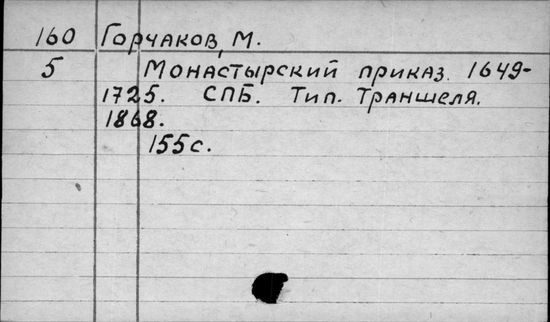 160 Горчаков, М.
5 Монастырский приказ. 1649-
1725. СПБ. Тип. Траншеля.
1868.
155с.